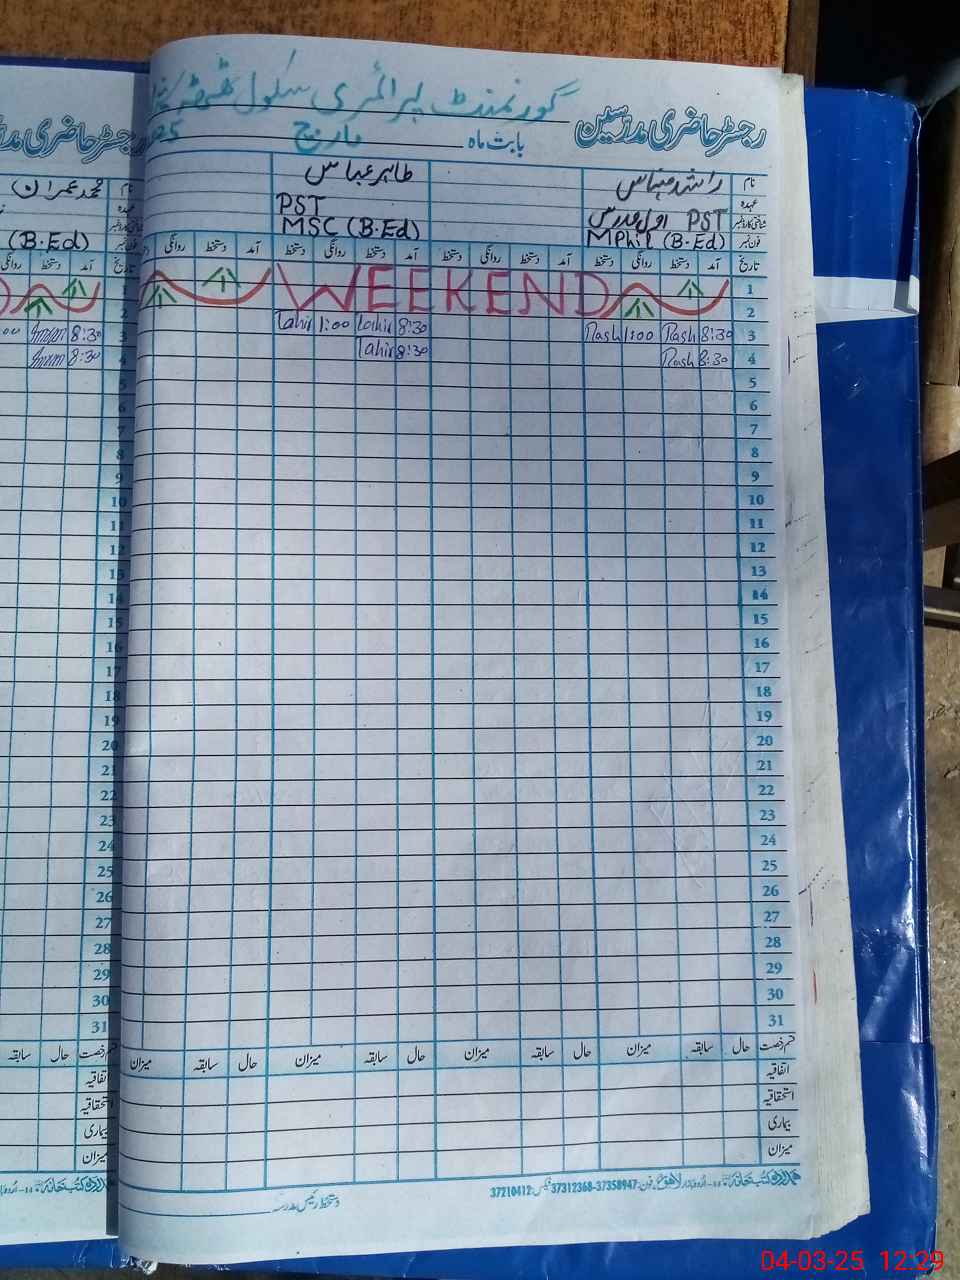 گورنمنٹ پرائمری سکول
رجسٹر حاضری مدرسین
بابت ماہ مارچ
نام راشد عباس طاہر عباس محمد عمران
عہدہ
اول مدرس PST PST
فون نمبر MPhil (B.Ed) MSC (B.Ed) (B.Ed)
تاریخ آمد دستخط روانگی دستخط آمد دستخط روانگی دستخط آمد دستخط روانگی دستخط آمد دستخط روانگی
1 WEEKEND
2
3 8:30 Rash 1:00 Rash 8:30 Tahir 1:00 Tahir 8:30 Imran
4 8:30 Rash 8:30 Tahir 8:30 Imran
5
6
7
8
9
10
11
12
13
14
15
16
17
18
19
20
21
22
23
24
25
26
27
28
29
30
31
قسم رخصت حال سابقہ میزان حال سابقہ میزان حال سابقہ میزان حال سابقہ میزان
اتفاقیہ
استحقاقیہ
بیماری
میزان
ہمدرد کتب خانہ اردو بازار لاہور فون: 37358947-37312368 فیکس: 37210412
دستخط رئیس مدرسہ
04-03-25 12:29